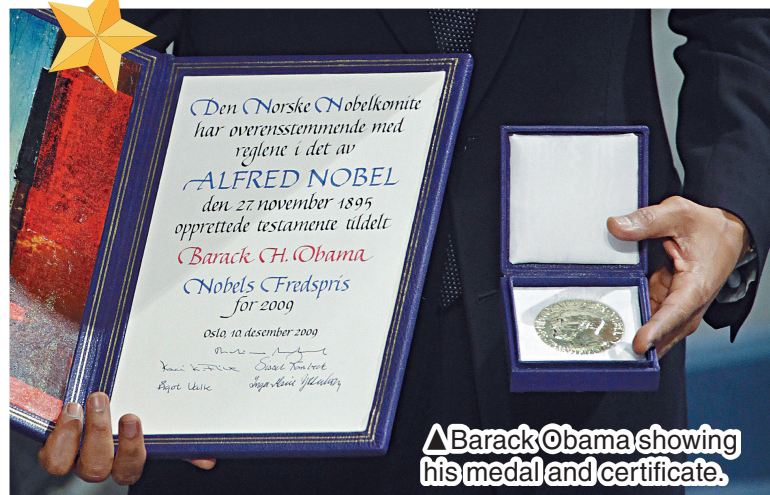 Den Norske Nobelkomite
har overensstemmende med
reglene i det av
ALFRED NOBEL
den 27. november 1895
opprettede testamente tildelt
Barack H. Obama
Nobels Fredspris
for 2009
Oslo, 10. desember 2009
▲Barack Obama showing
his medal and certificate.